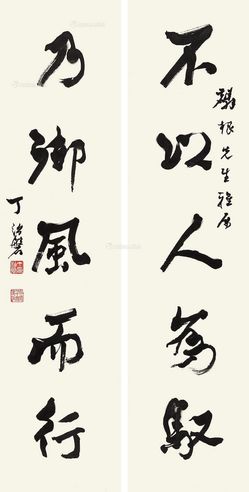 不以人為馭
根先生雅屬
乃御風而行
丁治磐